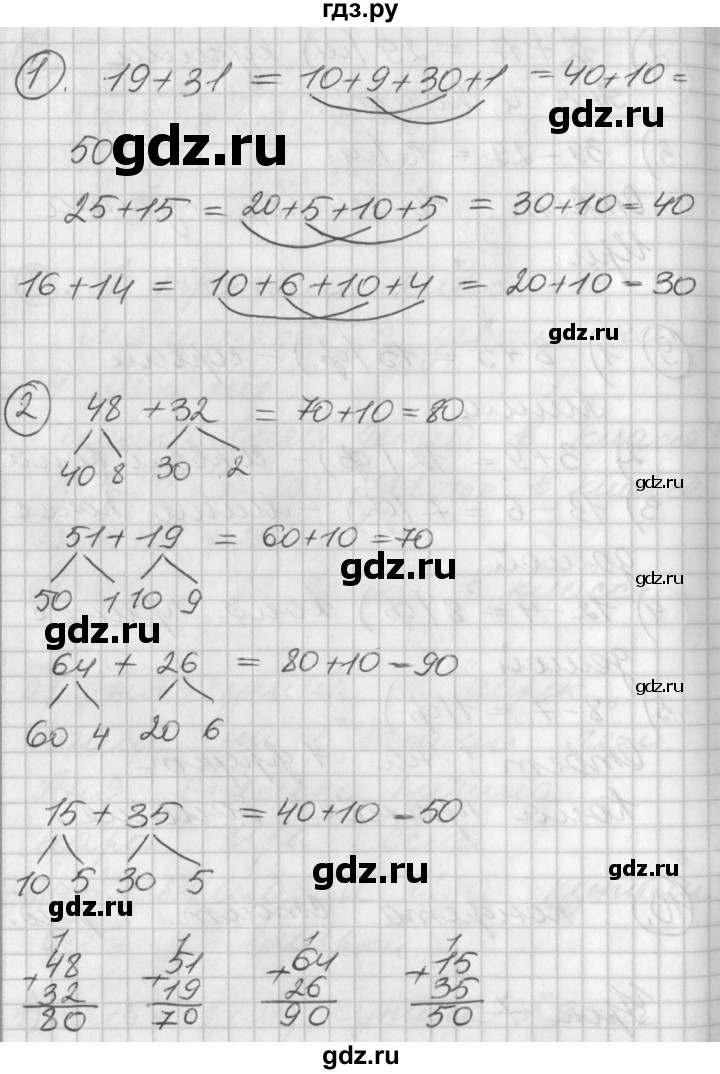 гдз.ру
1. 19+31 = 10+9+30+1 = 40+10 =
gdz.ru
50 gdz.ru
25+15 = 20+5+10+5 = 30+10=40
16+14 = 10+6+10+4 = 20+10-30
gdz.ru
2 48+32 = 70+10=80
40 8 30 2
gdz.ru
51+19 = 60+10=70
gdz.ru
gdz.ru
50 1 10 9
gdz.ru
64+26 = 80+10-90
gdz.ru
60 4 20 6
15+35 = 40+10-50
gdz.ru
gdz.ru
10 5 30 5
gdz.ru
1 1 1 1
+48 +51 +64 +15
32 19 26 35
80 70 90 50
gdz.ru